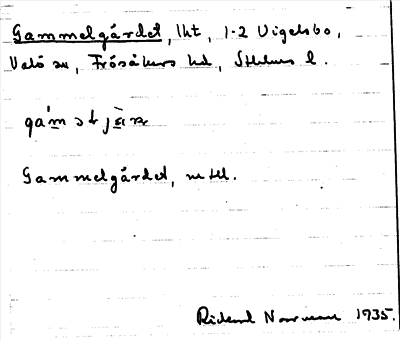 Gammelgårdet, lht, 1-2 Vigelsbo,
Valö sn, Frösåkers hd, Sthlms l.
Gammelgårdet, n tll.
Rickard Norrman 1935.